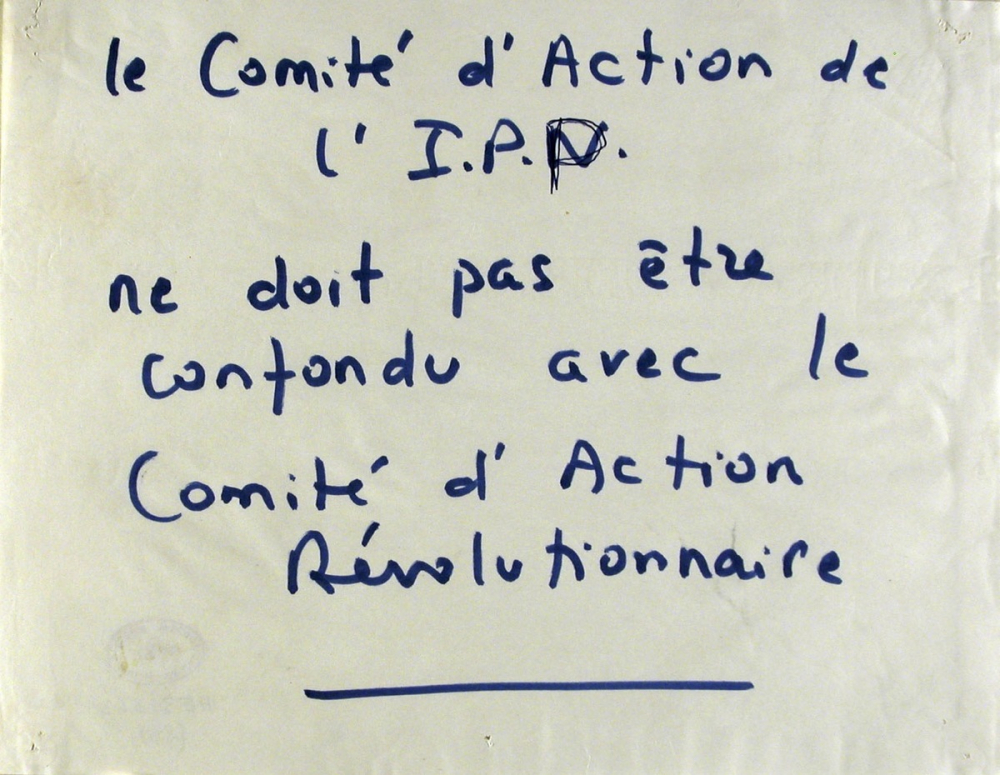 le Comité d'Action de
l' I.P.N.
ne doit pas être
confondu avec le
Comité d'Action
Révolutionnaire